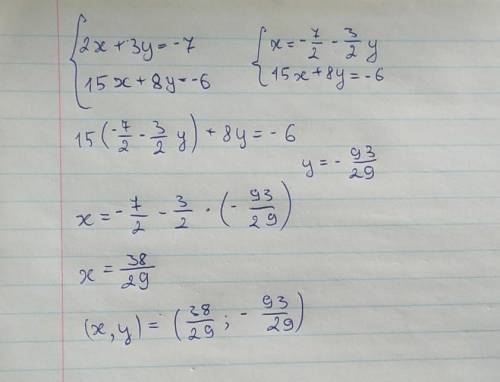 {2x+3y=-7 {x=-7/2-3/2y
{15x+8y=-6 {15x+8y=-6
15(-7/2-3/2y)+8y=-6
y=-93/29
x=-7/2-3/2·(-93/29)
x=38/29
(x,y)=(38/29;-93/29)